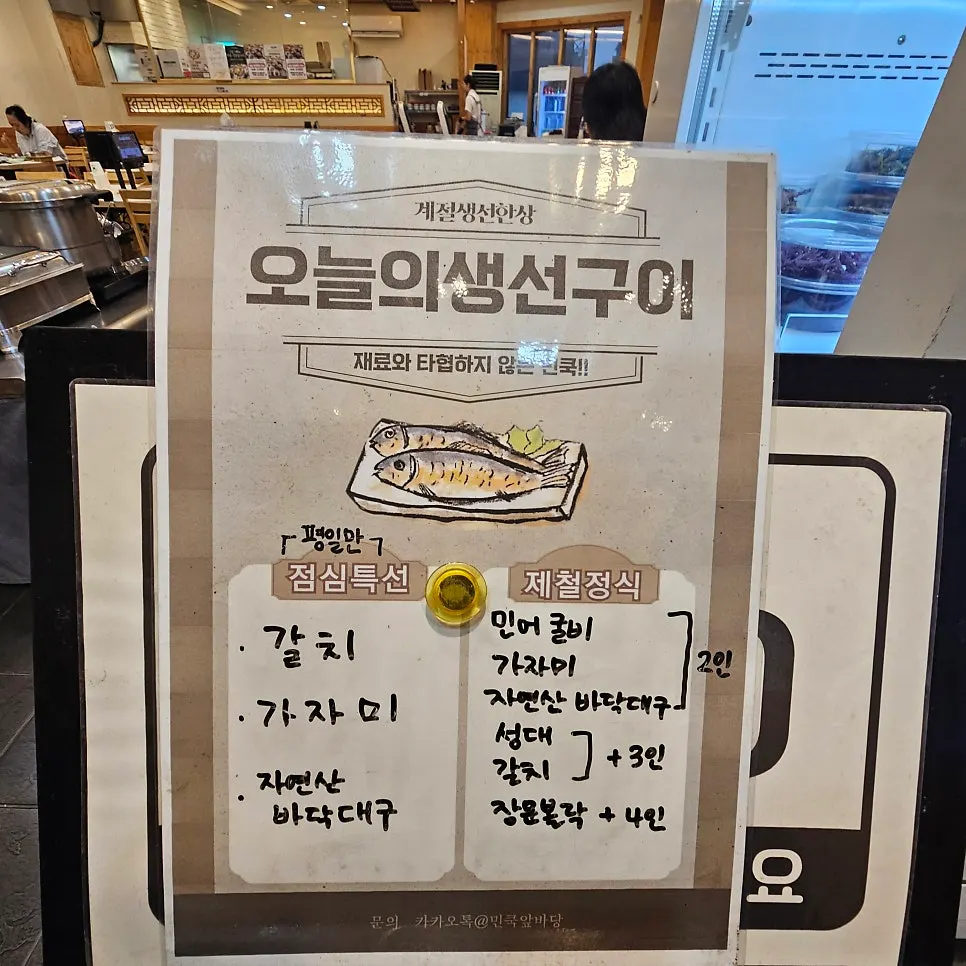 계절생선한상
오늘의생선구이
재료와 타협하지 않는 민쿡!!
「평일만」
점심특선
· 갈치
· 가자미
· 자연산
바닥대구
제철정식
민어굴비
가자미
자연산 바닥대구
2인
성대
갈치
+3인
장문볼락 +4인
문의 카카오톡@민쿡앞바당
요